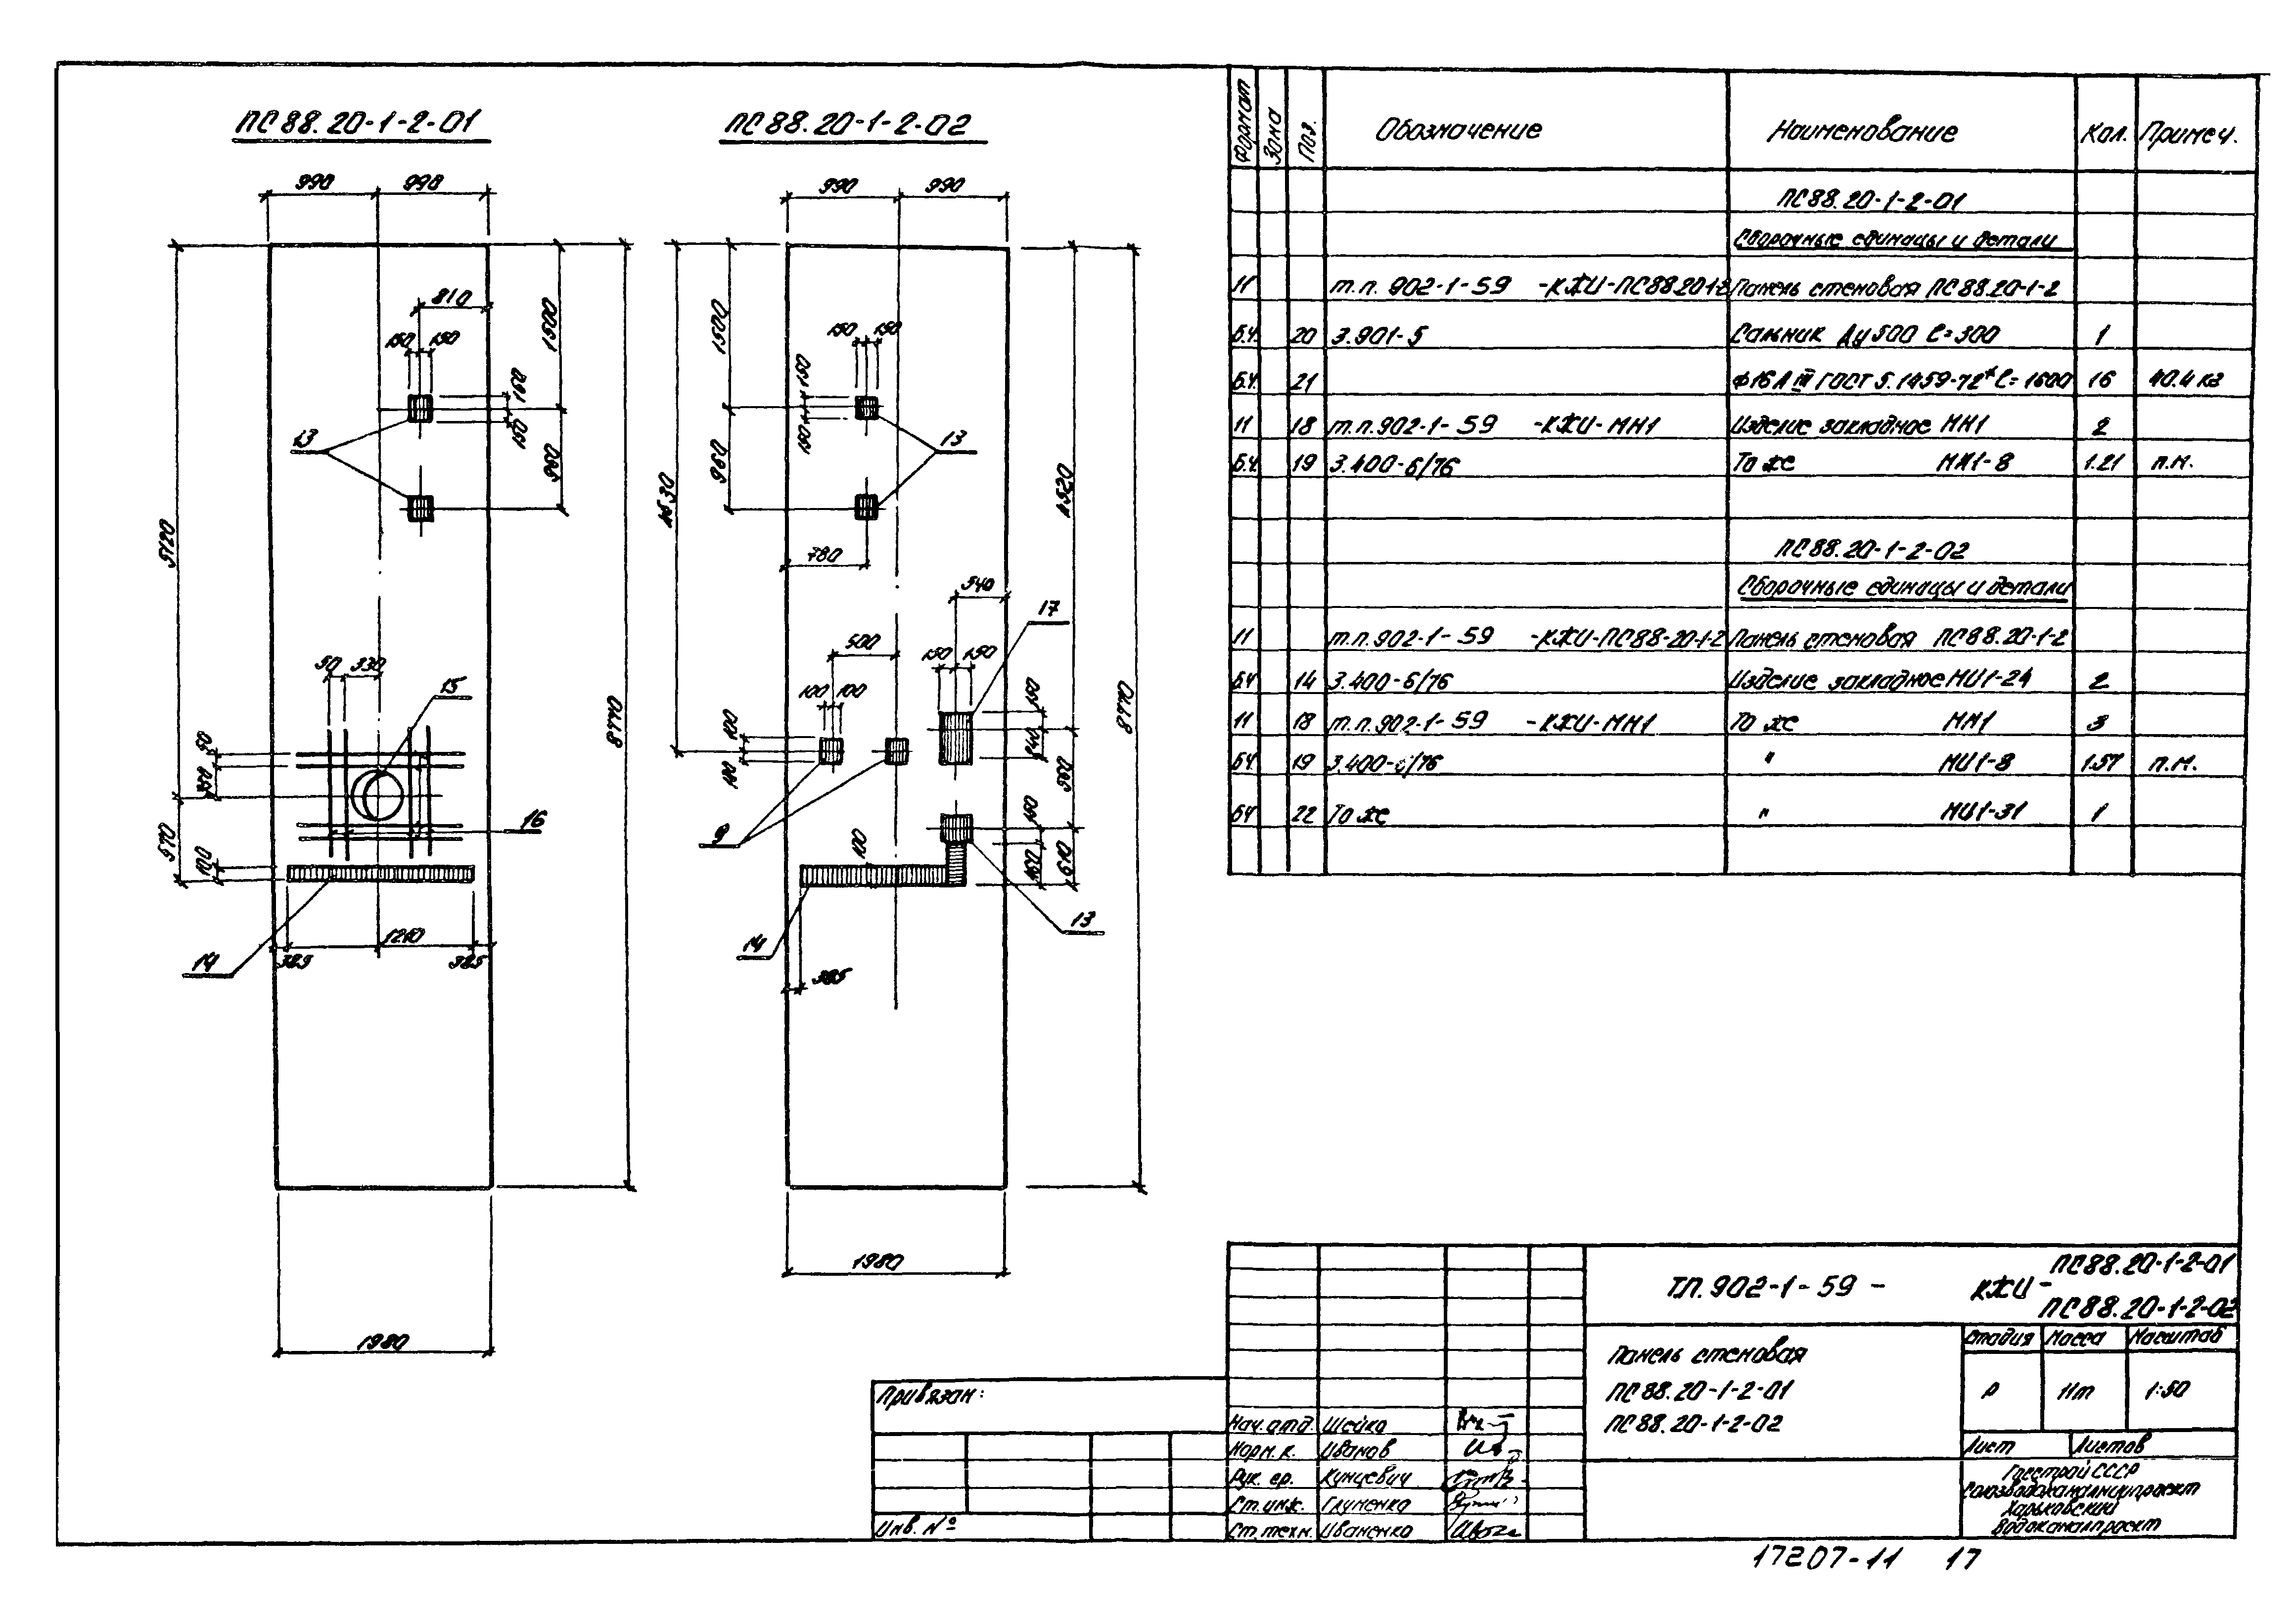 ПС88.20-1-2-01
ПС88.20-1-2-02
990 990
810
150 150
150
150
1500
960
13
5120
8770
50 330
15
50
16
570
100
14
1210
385 385
1980
990 990
1500
150 150
150
150
960
13
4630
4520
780
540
17
500
150 150
100 100
100
100
150
340
900
8770
9
100
150
160
610
13
14
385
1980
Формат Зона Поз. Обозначение Наименование Кол. Примеч.
ПС88.20-1-2-01
Сборочные единицы и детали
11 т.п. 902-1-59 -КЖИ-ПС88.20-1-2 Панель стеновая ПС88.20-1-2
БЧ 20 3.901-5 Сальник Ду500 ℓ=300 1
БЧ 21 ф16АIII ГОСТ 5.1459-72* ℓ=1600 16 40.4 кг
11 18 т.п.902-1-59 -КЖИ-МН1 Изделие закладное МН1 2
БЧ 19 3.400-6/76 То же МИ1-8 1.21 п.м.
ПС88.20-1-2-02
Сборочные единицы и детали
11 т.п.902-1-59 -КЖИ-ПС88-20-1-2 Панель стеновая ПС88.20-1-2
БЧ 14 3.400-6/76 Изделие закладное МИ1-24 2
11 18 т.п.902-1-59 -КЖИ-МН1 То же МН1 3
БЧ 19 3.400-6/76 " МИ1-8 1.57 п.м.
БЧ 22 То же " МИ1-31 1
ТП.902-1-59 - КЖИ- ПС88.20-1-2-01
ПС88.20-1-2-02
Панель стеновая
ПС88.20-1-2-01
ПС88.20-1-2-02
Стадия Масса Масштаб
Р 11т 1:50
Лист Листов
Госстрой СССР
Союзводоканалниипроект
Харьковский
Водоканалпроект
Привязан:
Инв. №
Нач.отд. Шейко
Норм.к. Иванов
Рук. гр. Кунцевич
Ст.инж. Глуменко
Ст.техн. Иваненко
17207-11 17